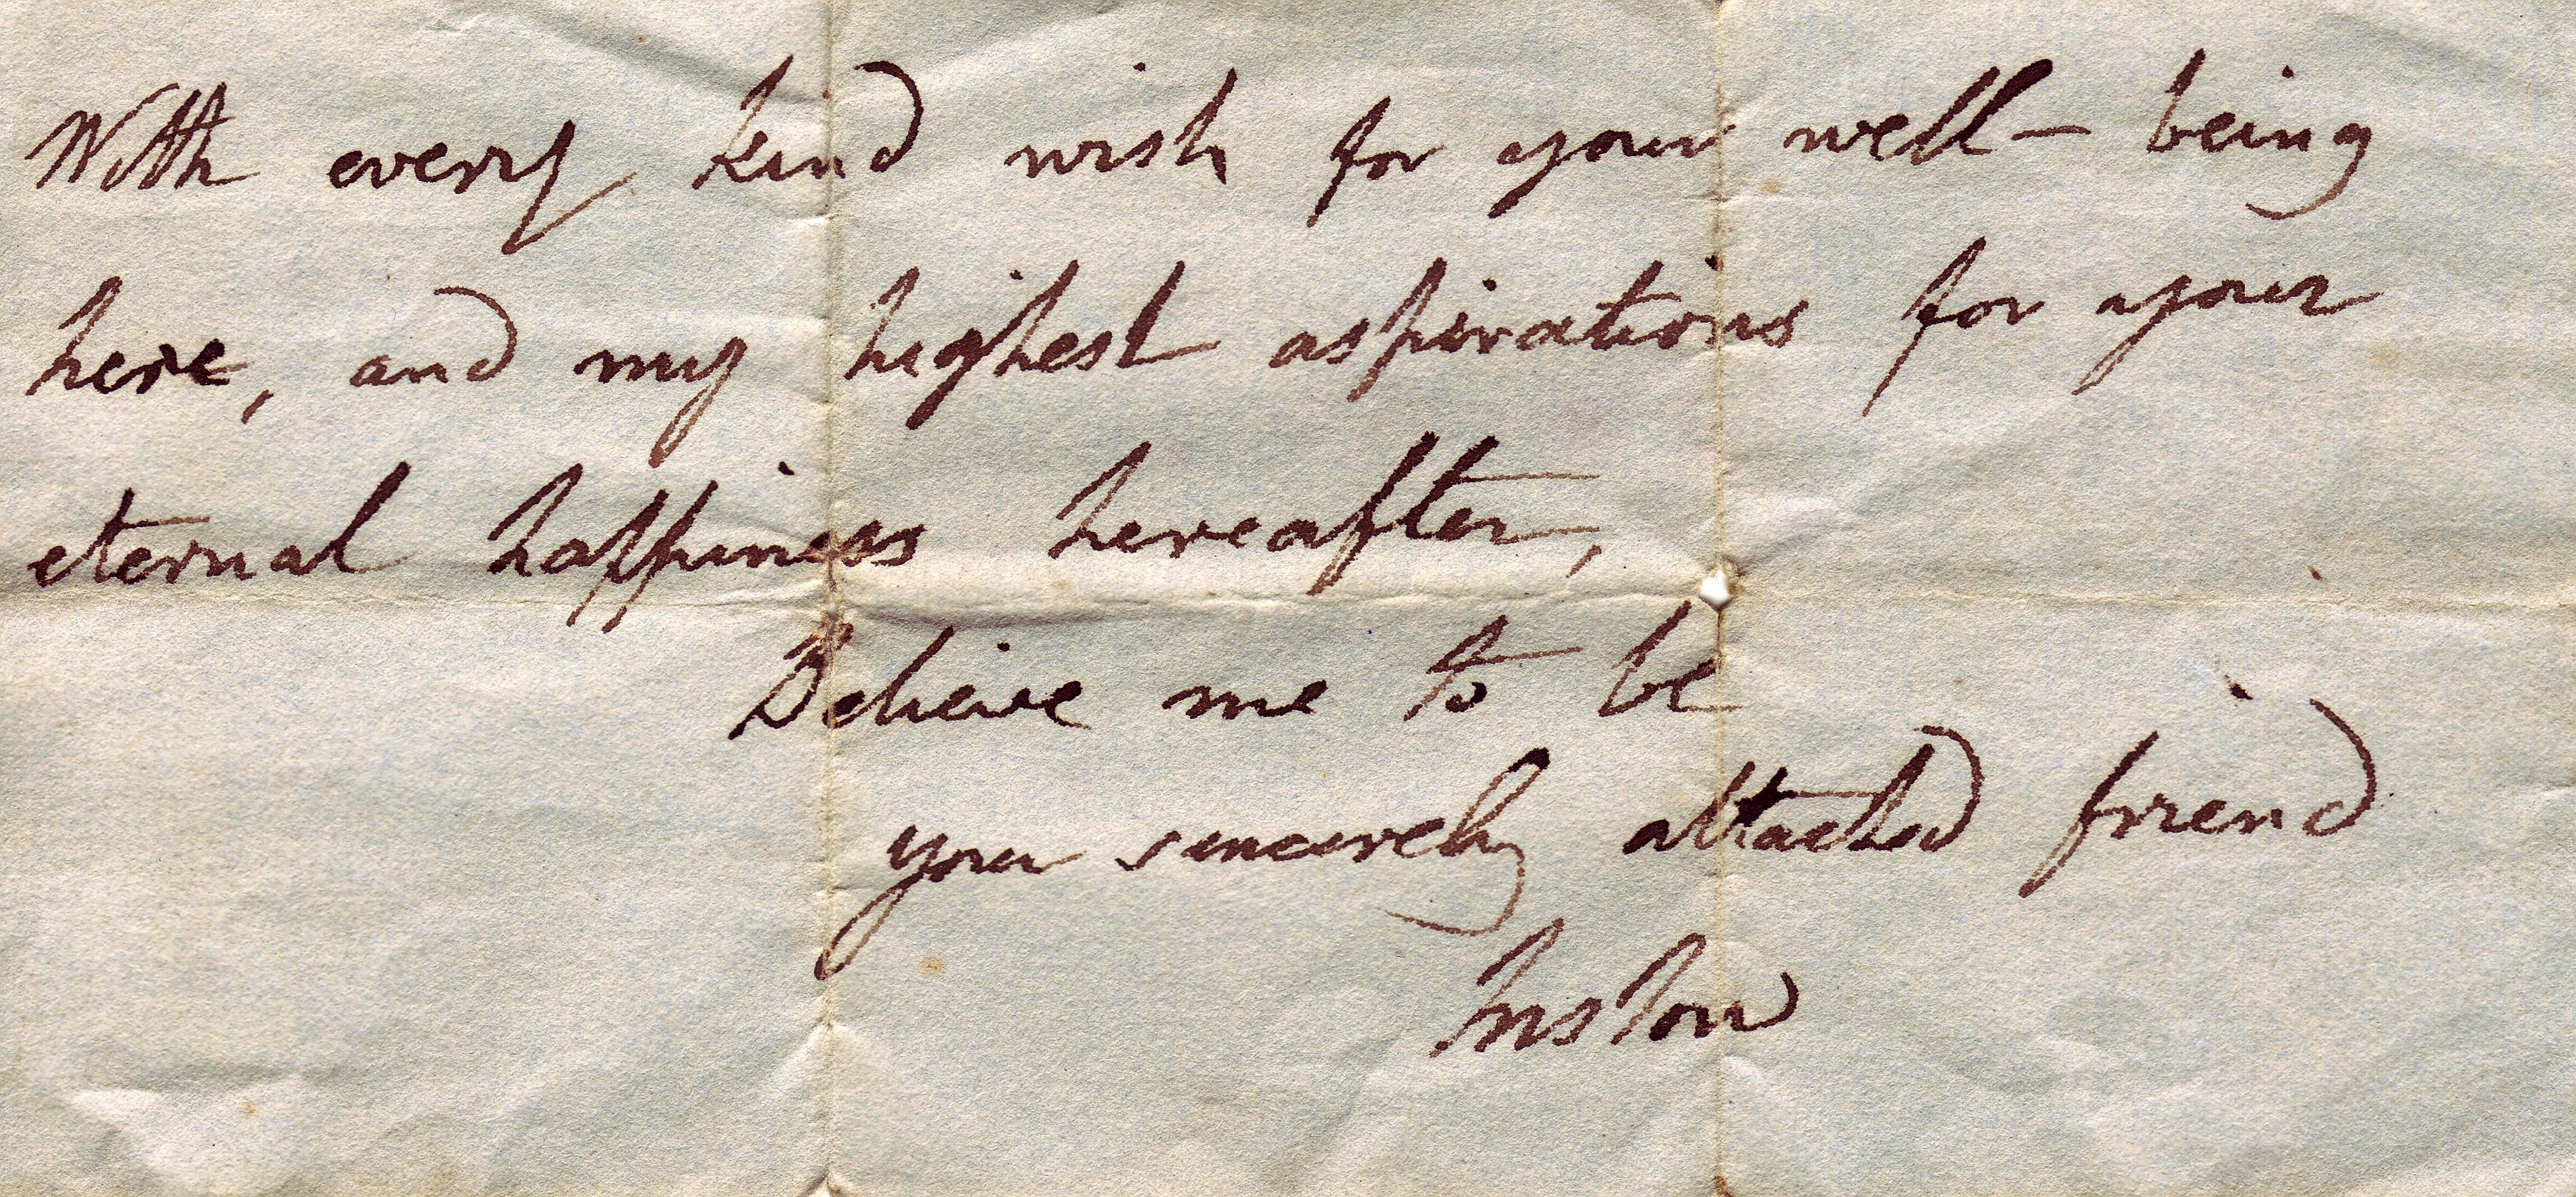 With every kind wish for your well-being
here, and my highest aspirations for your
eternal happiness hereafter,
Believe me to be
your sincerely attached friend